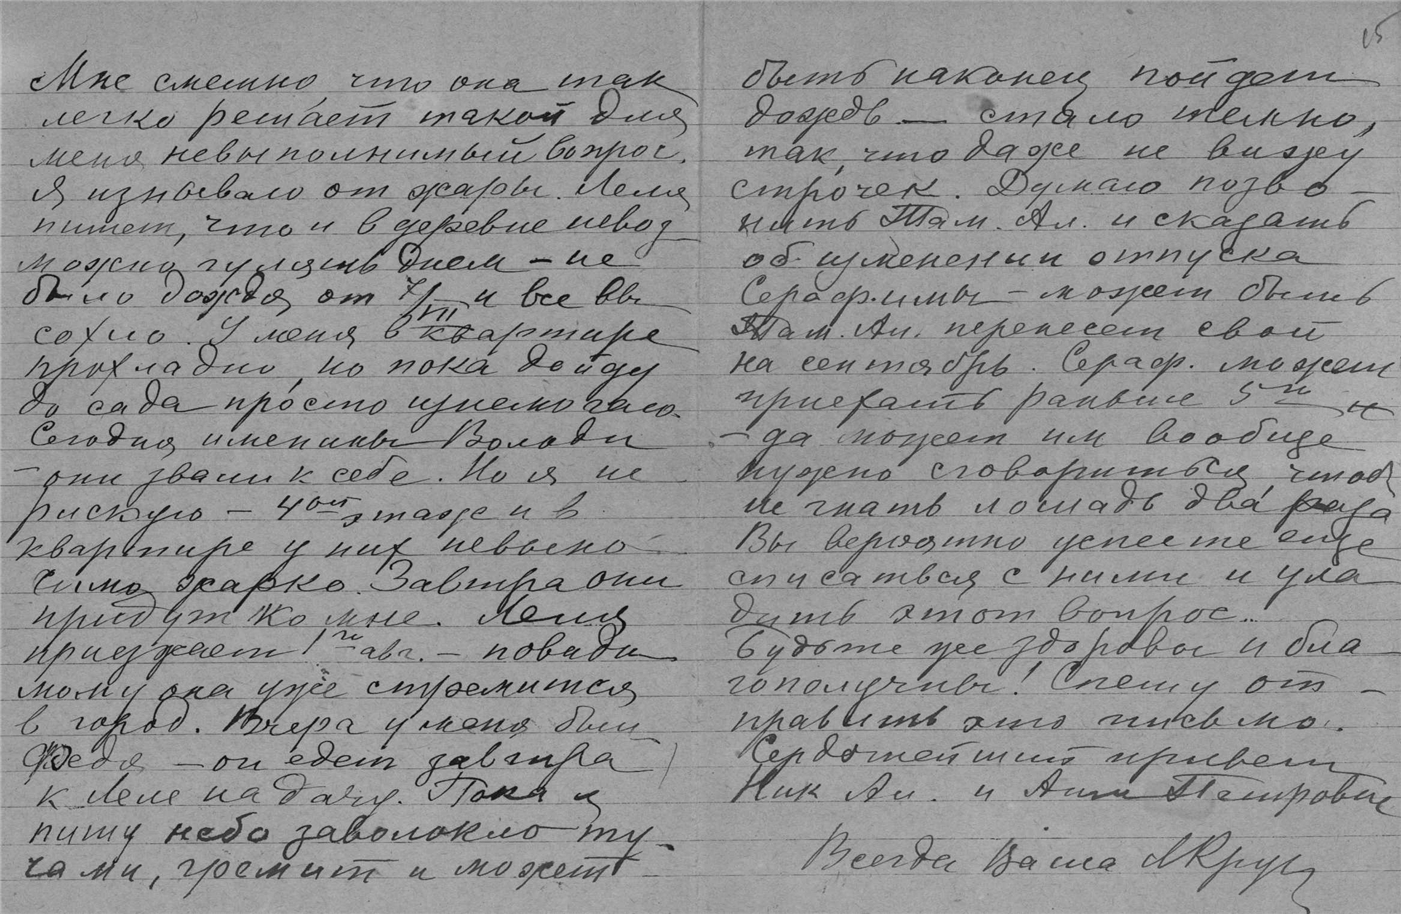 Мне смешно, что она так
легко решает такой для
меня невыполнимый вопрос.
Я изнываю от жары. Леля
пишет, что и в деревне невоз
можно гулять днем – не
было дождя от 7/VII и все вы
сохло. У меня в квартире
прохладно, но пока дойду
до сада просто изнемогаю.
Сегодня именины Володи
– они звали к себе. Но я не
рискую – 4ой этаж и в
квартире у них невыно
симо жарко. Завтра они
придут ко мне. Леля
приезжает 1го авг. – повиди
мому она уже стремится
в город. Вчера у меня был
Федя – он едет завтра
к Леле на дачу. Пока я
пишу небо заволокло ту-
чами, гремит и может
15
быть наконец пойдет
дождь – стало темно,
так, что даже не вижу
строчек. Думаю позво-
нить Там. Ал. и сказать
об изменении отпуска
Серафимы – может быть
Там. Ал. перенесет свой
на сентябрь. Сераф. может
приехать раньше 5го
– да может им вообще
нужно сговориться, чтоб
не гнать лошадь два раза
Вы вероятно успеете еще
списаться с ними и ула
дить этот вопрос..
Будьте же здоровы и бла-
гополучны! Спешу от-
править это письмо.
Сердечнейший привет
Ник Ал. и Анне Петровне
Всегда Ваша